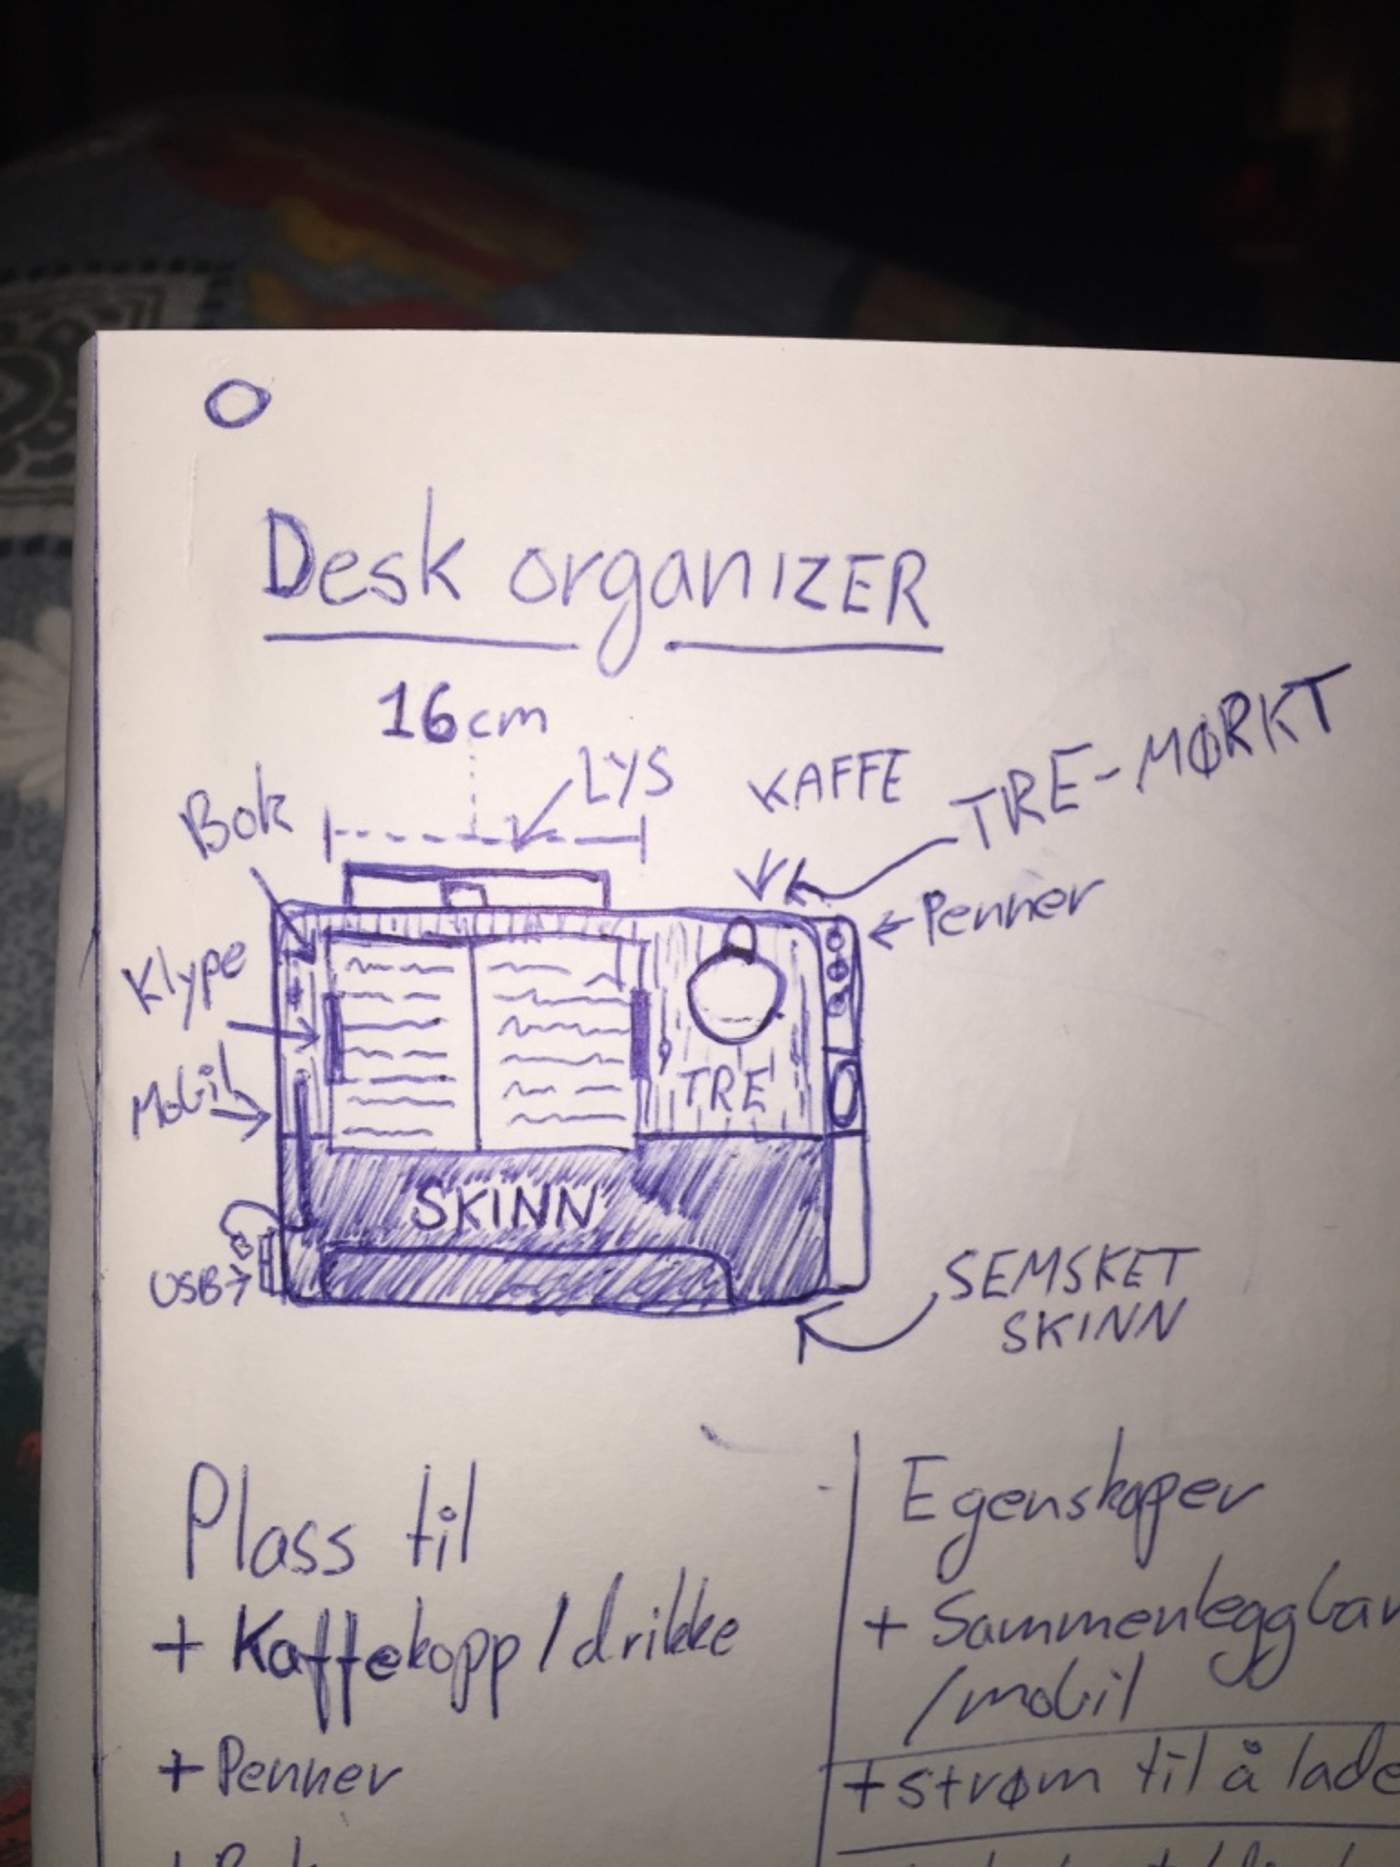 Desk organIZER
16cm
LYS
KAFFE
TRE-MØRKT
Bok
Penner
Klype
Mobil
TRE
SKINN
USB
SEMSKET
SKINN
Plass til
+ Kaffekopp/drikke
+ Penner
Egenskaper
+ Sammenleggbar
/mobil
+ strøm til å lade